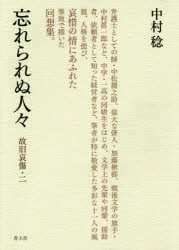 中村稔
弁護士としての師・中松澗之助、偉大な俳人・加藤楸邨、戦後文学の旗手・
中村真一郎など、中学・一高の同級生をはじめ、文学上の先輩や同輩、援助
者、依頼者として知った経営者など、筆者が特に敬愛した多彩な十一人の風
貌、人格を偲び、
哀惜の情にあふれた
筆致で描いた
回想集。
忘れられぬ人々
故旧哀傷・二
青土社